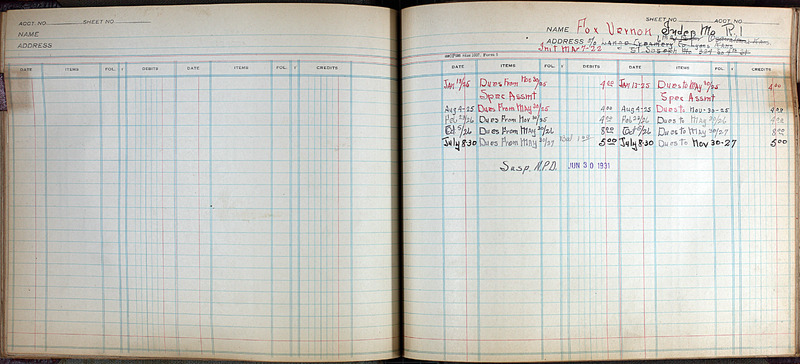 ACCT. NO. SHEET NO.
NAME
ADDRESS
DATE ITEMS FOL. √ DEBITS DATE ITEMS FOL. √ CREDITS
SHEET NO. ACCT. NO.
NAME Fox Vernon Indep Mo R.1
ADDRESS c/o Creamery Co Farm
Init Mar 7-22 St Joseph Mo
DATE ITEMS FOL. √ DEBITS DATE ITEMS FOL. √ CREDITS
Jan 13/25 Dues From Nov 30/25 4 00 Jan 13-25 Dues to May 30/25 4 00
Spec Assmt Spec Assmt
Aug 4-25 Dues From May 30/25 4 00 Aug 4-25 Dues to Nov-30-25 4 00
Feb 23/26 Dues From Nov 30/25 4 00 Feb 23/26 Dues to May 30/26 4 00
Oct 5/26 Dues From May 30/26 8 00 Oct 5/26 Dues to May 30/27 8 00
July 8-30 Dues From May 30/27 Bal 5 00 July 8-30 Dues to Nov 30-27 5 00
Susp. N.P.D. JUN 30 1931